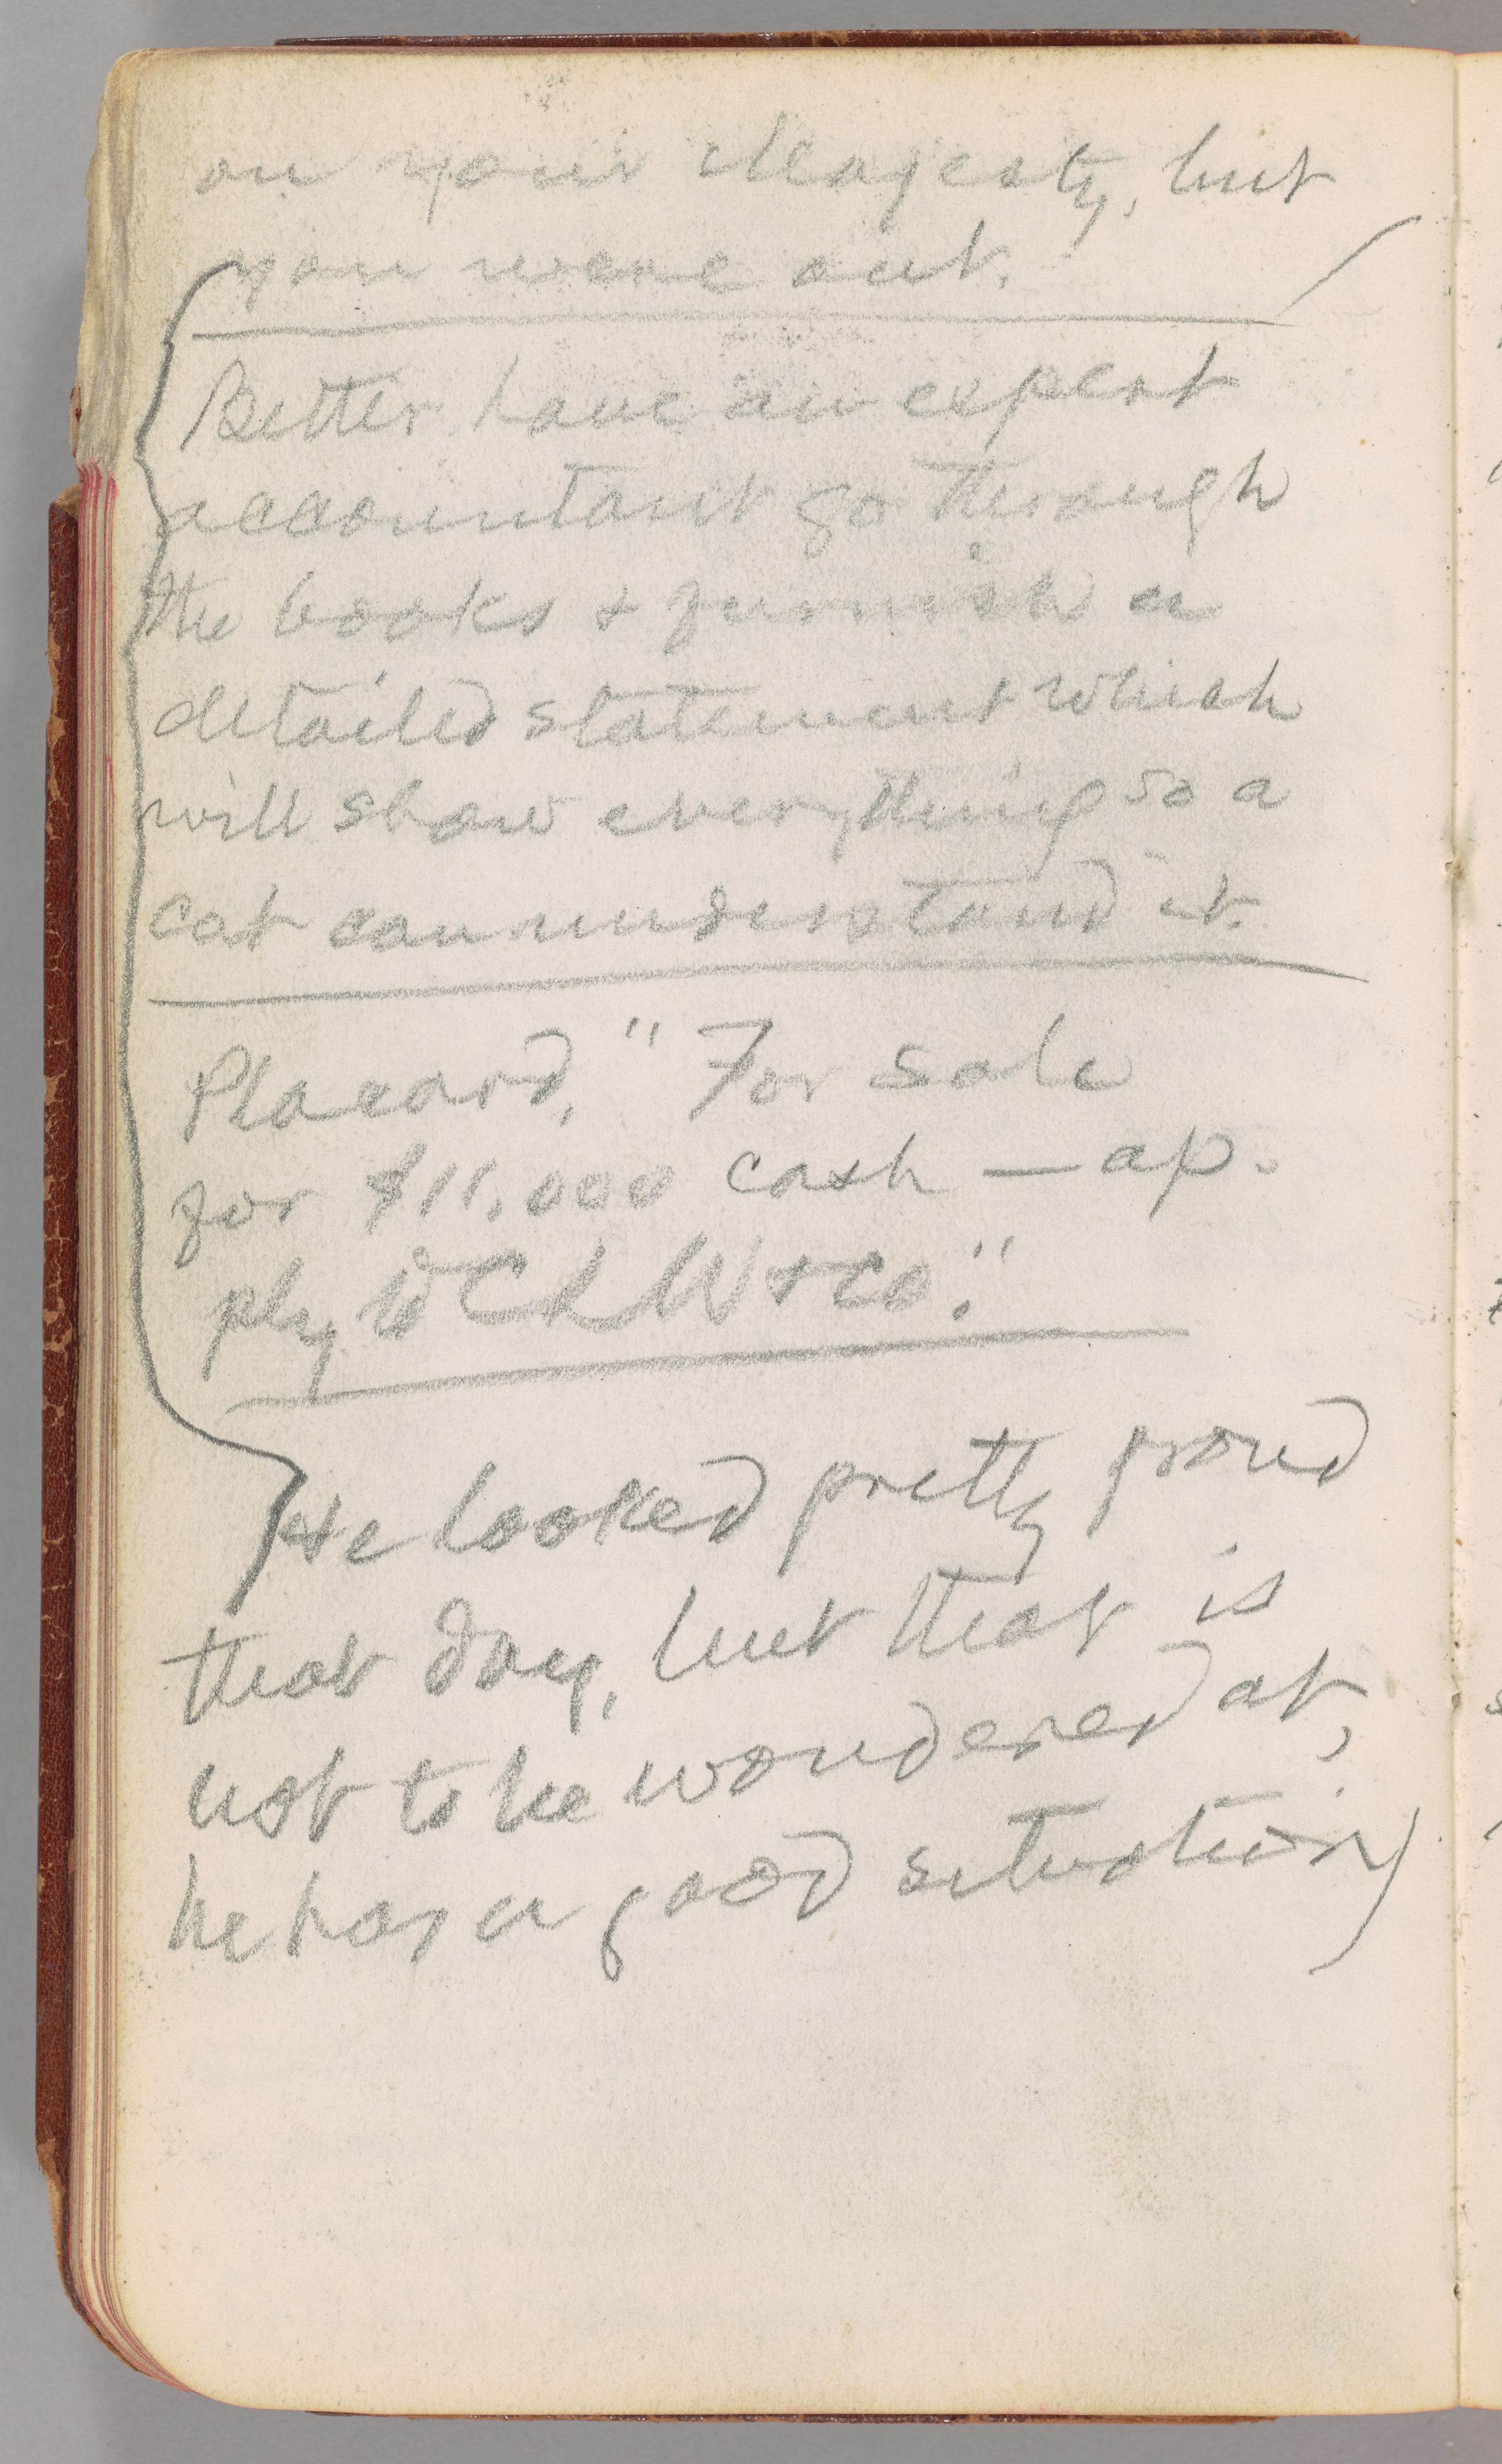 on your Majesty, but
you were out.
Better have an expert
accountant go through
the books & furnish a
detailed statement which
will show everything so a
cat can understand it.
Placard, "For sale
for $11,000 cash — ap-
ply to C L W & Co."
He looked pretty proud
that day, but that is
not to be wondered at,
he has a good situation